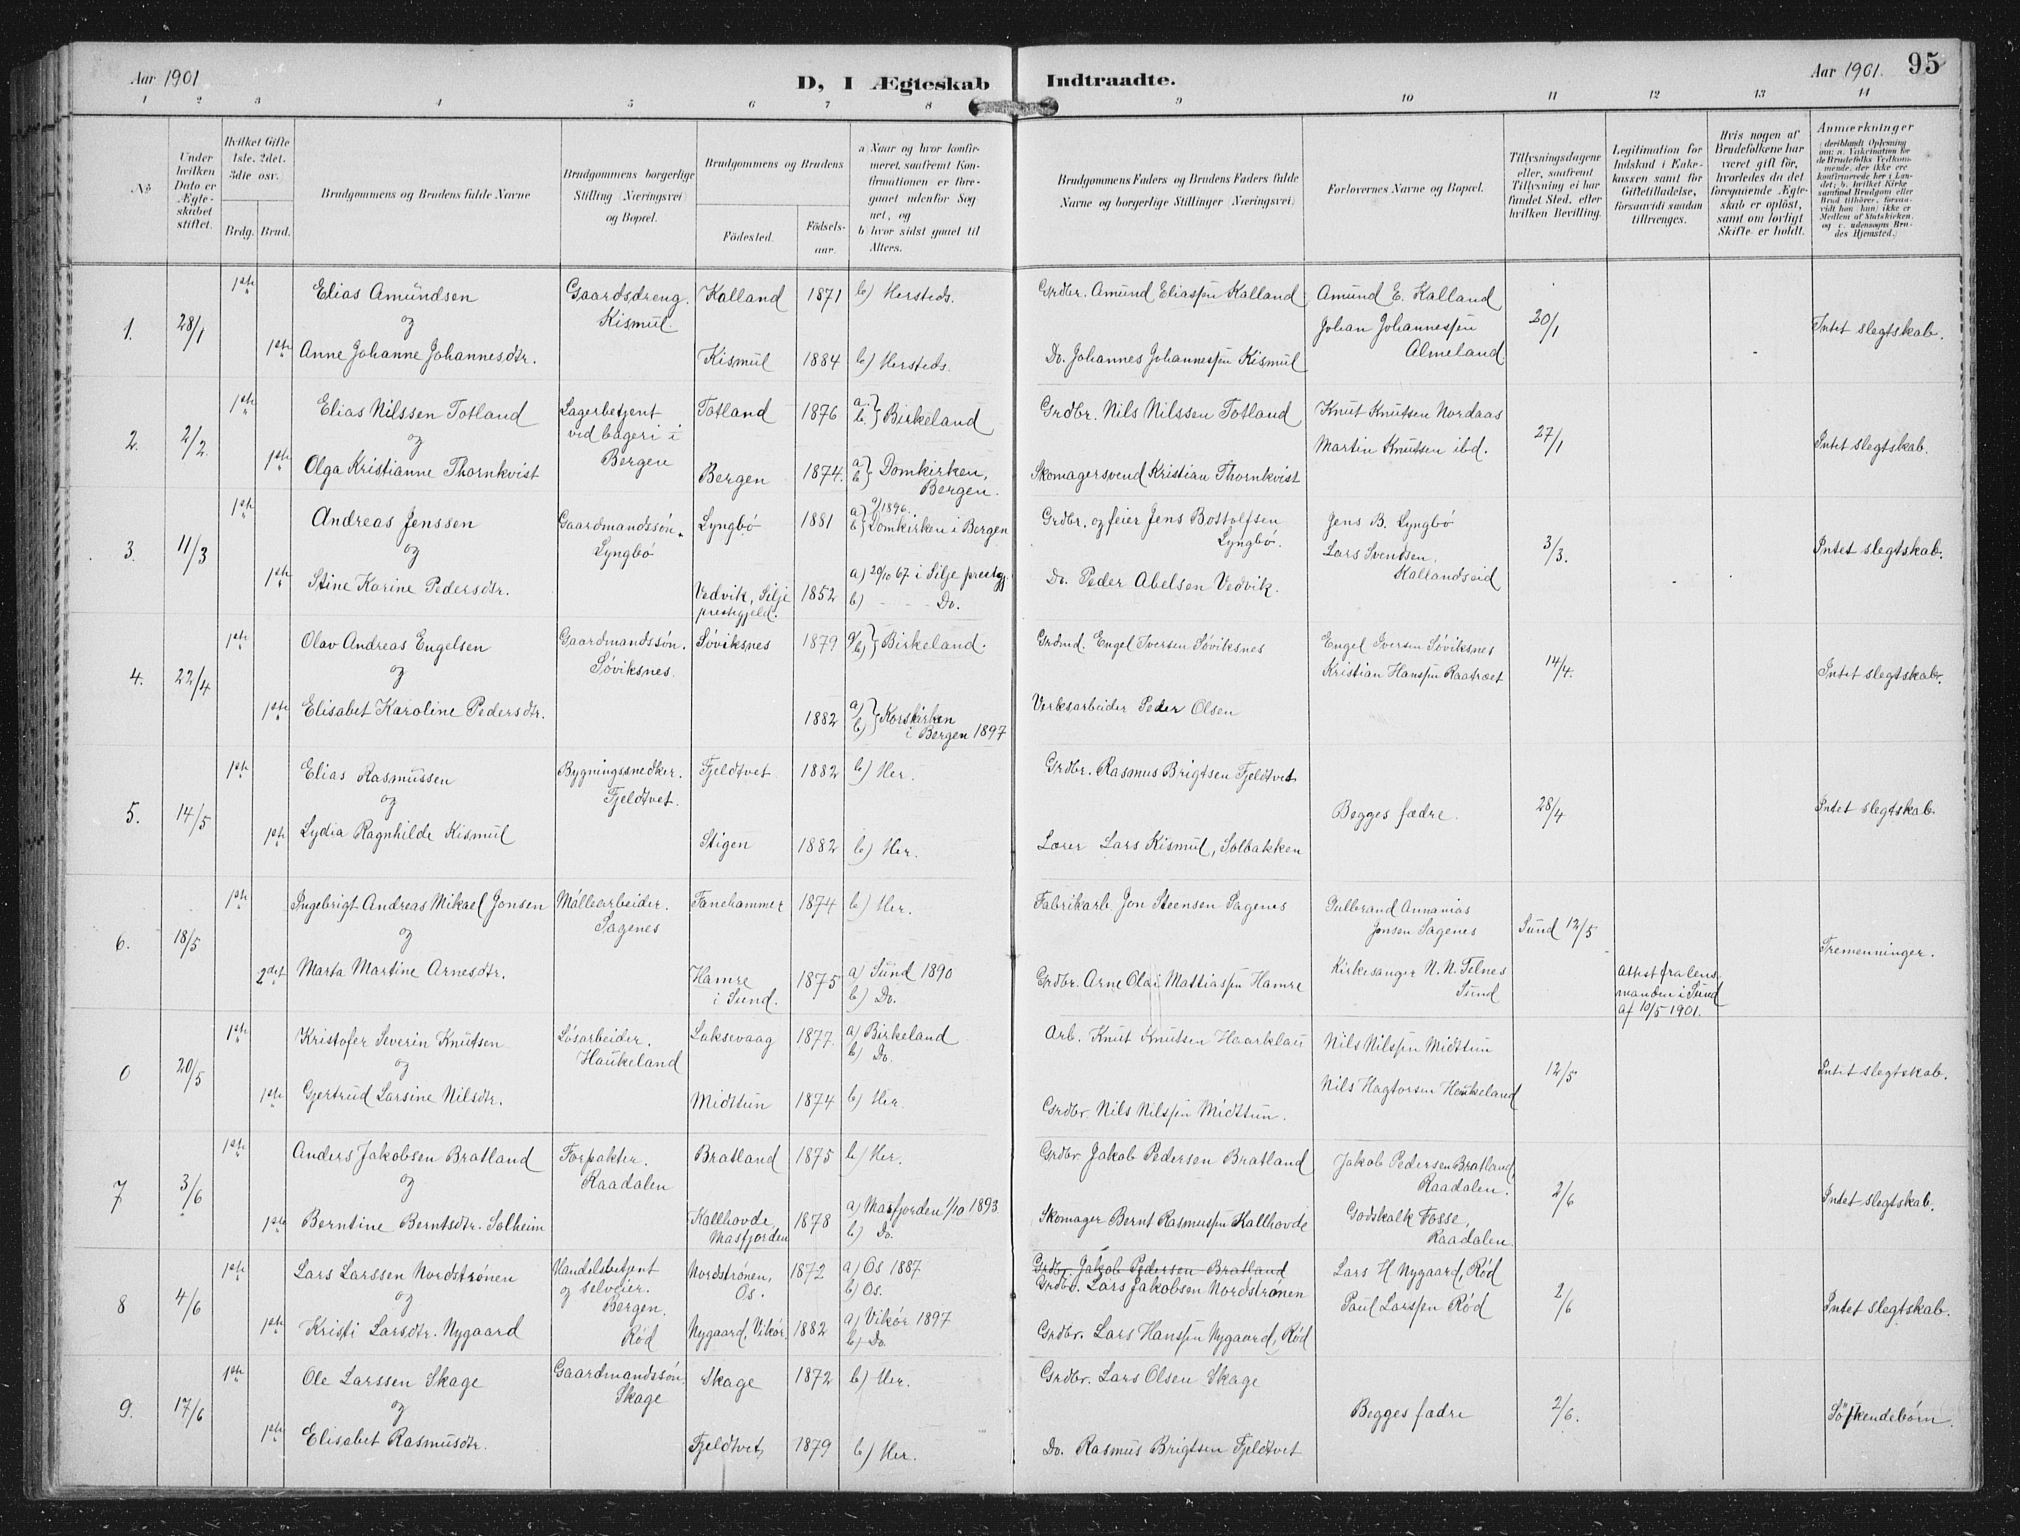 Aar 1901
D, I Ægteskab Indtraadte.
Aar 1901. 95
1 2 3 4 5 6 7 8 9 10 11 12 13 14
No
Under hvilken Dato er Ægteskabet stiftet.
Hvilket Gifte 1ste, 2det, 3die osv.
Brdg. Brud.
Brudgommens og Brudens fulde Navne
Brudgommens borgerlige Stilling Næringsvei og Bopæl.
Brudgommens og Brudens
Födested.
Födselsaar.
a Naar og hvor konfirmeret, saafremt Konfirmationen er foregaaet udenfor Sognet, og
b hvor sidst gaaet til Alters.
Brudgommens Faders og Brudens Faders fulde Navne og borgerlige Stillinger Næringsvei
Forlovernes Navne og Bopæl.
Tillysningsdagene eller, saafremt Tillysning ei har fundet Sted, efter hvilken Bevilling.
Legitimation for Indskud i Enkekassen samt for Giftetilladelse, forsaavidt saadan tiltrænges.
Hvis nogen af Brudefolkene har været gift før, hvorledes da det foregaaende Ægteskab er oplöst, samt om lovligt Skifte er holdt.
Anmærkninger
1. 28/1 1ste Elias Amundsen Gaardsdreng. Kismul. Kalland 1871 b) Hersteds. Grdbr. Amund Eliassen Kalland Amund E. Kalland 20/1 Intet slegtskab.
og
1ste Anne Johanne Johannesdtr. Kismul 1884 b) Hersteds. Do. Johannes Johannessen Kismul Johan Johannessen Almeland
2. 2/2 1ste Elias Nilssen Totland Lagerbetjent ved bageri i Bergen Totland 1876 a. b.} Birkeland Grdbr. Nils Nilssen Totland Knut Knutsen Nordaas 27/1 Intet slegtskab.
og
1ste Olga Kristianne Thornkvist Bergen 1874. a b} Domkirken, Bergen. Skomagersvend Kristian Thornkvist Martin Knutsen ibd.
3. 11/3 1ste Andreas Jenssen Gaardmandssøn. Lyngbø Lyngbø 1881 a) 1896. b) Domkirken i Bergen Grdbr. og feier Jens Bostolfsen Lyngbø. Jens B. Lyngbø 3/3. Intet slegtskab.
og
1ste Stine Karine Pedersdtr. Vedvik, Silje prestegjeld. 1852 a) 20/10 67. i Silje prestgj. b) Do. Do. Peder Abelsen Vedvik. Lars Svendsen, Kallandseid
4. 22/4 1ste Olav Andreas Engelsen Gaardmandssøn. Søviksnes. Søviksnes 1879 a/b)} Birkeland. Grdmd. Engel Iversen Søviksnes Engel Iversen Søviksnes 14/4. Intet slegtskab.
og
1ste Elisabet Karoline Pedersdtr. 1882 a) b)} Korskirken i Bergen 1897 Verksarbeider Peder Olsen Kristian Hanssen Raatræet
5. 14/5 1ste Elias Rasmussen Bygningssnedker. Fjeldtvet. Fjeldtvet 1882 b) Her. Grdbr. Rasmus Brigtsen Fjeldtvet Begges fædre. 28/4 Intet slegtskab.
og
1ste Lydia Ragnhilde Kismul Stigen 1882 b) Her. Lærer Lars Kismul, Solbakken
6. 18/5 1ste Ingebrigt Andreas Mikael Jonsen Møllearbeider. Sagenes Fanehammer 1874 b) Her. Fabrikarb. Jon Steensen Sagenes Gulbrand Annanias Jonsen Sagenes Sund 12/5 Tremenninger.
og
2det Marta Martine Arnesdtr. Hamre i Sund. 1875 a) Sund 1890 b) Do. Grdbr. Arne Olai Mattiassen Hamre Kirkesanger N. N. Telnes Sund Attest fra lensmanden i Sund af 10/5 1901.
0 20/5 1ste Kristofer Severin Knutsen Løsarbeider. Haukeland Laksevaag 1877. a) Birkeland b) Do. Arb. Knut Knutsen Haarklau Nils Nilssen Midttun 12/5 Intet slegtskab.
og
1ste Gjertrud Larsine Nilsdtr. Midttun 1874 b) Her. Grdbr. Nils Nilssen Midttun. Nils Hagtorsen Haukeland
7 3/6 1ste Anders Jakobsen Bratland Forpakter. Raadalen Bratland 1875 b) Her. Grdbr Jakob Pedersen Bratland Jakob Pedersen Bratland, Raadalen. 2/6 Intet slegtskab.
og
1ste Berntine Berntsdtr. Solheim Kallhovde, Masfjorden 1878 a) Masfjorden 1/10 1893 b) Do. Skomager Bernt Rasmussen Kallhovde Godskalk Fosse, Raadalen.
8 4/6 1ste Lars Larssen Nordstrønen Handelsbetjent og selveier. Bergen. Rød Nordstrønen, Os. 1872 a) Os 1887 b) Os. Grdbr. Jakob Pedersen Bratland Grdbr. Lars Jakobsen Nordstrønen Lars H Nygaard, Rød 2/6 Intet slegtskab.
og
1ste Kristi Larsdtr. Nygaard Nygaard, Vikør. 1882 a) Vikør 1897 b) Do. Grdbr. Lars Hanssen Nygaard, Rød Paul Larssen Rød
9. 17/6 1ste Ole Larssen Skage Gaardmandssøn. Skage Skage 1872 b) Her. Grdbr. Lars Olsen Skage Begges fædre 2/6. Søskendebørn.
og
1ste Elisabet Rasmusdtr. Fjeldtvet, 1879 b) Her. Do. Rasmus Brigtsen Fjeldtvet